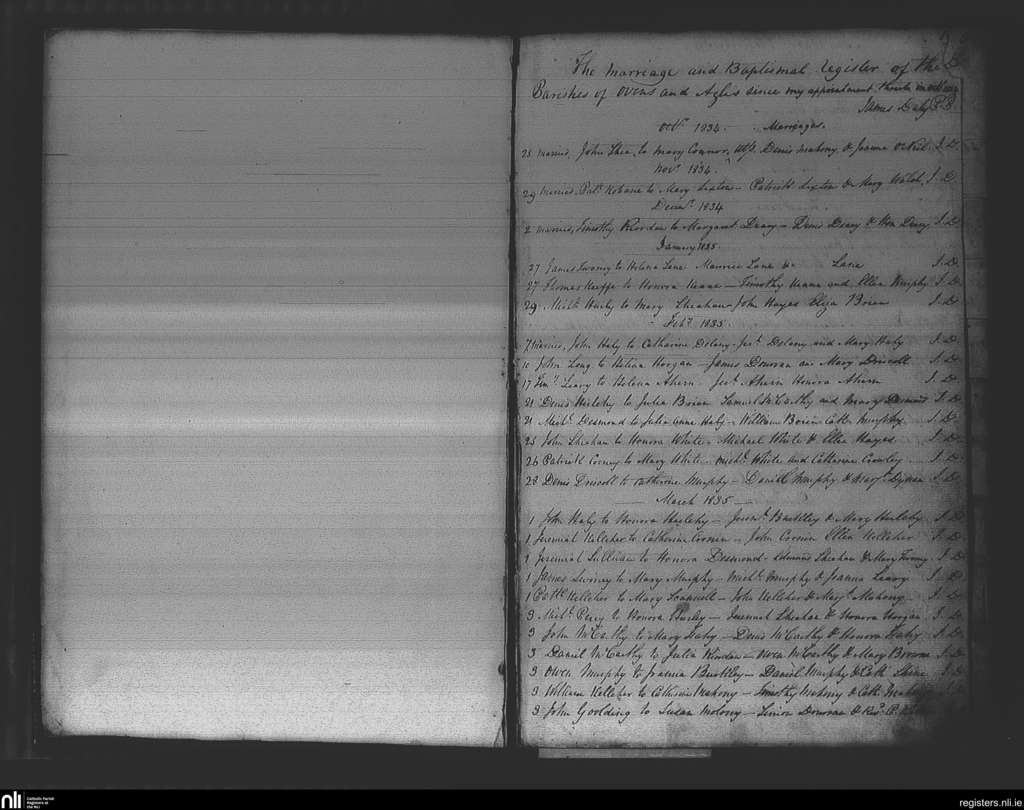 The Marriage and Baptismal register of the
Parishes of Ovens and Aglis since my appointment thereto
James Daly P.P.
Octr 1834 - Marriages.
25 Married, John Shea, to Mary Connor, Wss. Denis Mahony & Joanna O Neil J. D.
Novr 1834.
29 Married, Patk to Mary Sexton - Patrick Sexton & Mary Walsh, J. D.
Decemr 1834
2 Married, Timothy Riordan to Margaret Deasy - Denis Deasy & Hon Deasy J. D.
January 1835.
27 James Twomy to Helena Lane Maurice Lane & Lane J. D.
27 Thomas Keeffe to Honora Keane - Timothy Keane and Ellen Murphy J. D.
29 Michl to Mary Sheahan - John Hayes Eliza Brien J. D.
Feby 1835.
7 Married, John Haly to Catharine Delany - Delany and Mary Haly J. D.
10 John Long to Helena Horgan - James Donovan an Mary Driscoll J. D.
17 Leary to Helena Ahern Ahern Honora Ahern J. D.
21 Denis Herlehy to Julia Brien Samuel McCarthy and Mary Desmond J. D.
21 Michl Desmond to Julia Anne Haly - William Brien Cath Murphy J. D.
25 John Sheahan to Honora White - Michael White & Ellen Hayes J. D.
26 Patrick Corney to Mary White - Michl White and Catharine Crowley J. D.
28 Denis Driscoll to Catherine Murphy - Daniel Murphy & Margt J. D.
March 1835 -
1 John Haly to Honora Herlehy - Buttley & Mary Herlehy J. D.
1 Jeremiah Kelleher to Catherine Cronin - John Cronin Ellen Kelleher J. D.
1 Jeremiah Sullivan to Honora Desmond - Edmund Sheahan & Mary Twomy J. D.
1 James Swiney to Mary Murphy - Michl Murphy & Joanna Leary J. D.
1 Kelleher to Mary Scannell - John Kelleher & Margt Mahony J. D.
3 Michl Percy to Honora Hurley - Jeremiah Sheahan & Honora Horgan J. D.
3 John McCarthy to Mary Leahy - Denis McCarthy & Honora Leahy J. D.
3 Daniel McCarthy to Julia Riordan - Owen McCarthy & Mary Brown J. D.
3 Owen Murphy to Joanna Buttley - Daniel Murphy & Cath Shine J. D.
3 William Kelleher to Catherine Mahony - Timothy Mahony & Cath J. D.
3 John Goolding to Susan Molony - Simon Donovan & Revd
nli
Catholic Parish
Registers at
the NLI
registers.nli.ie